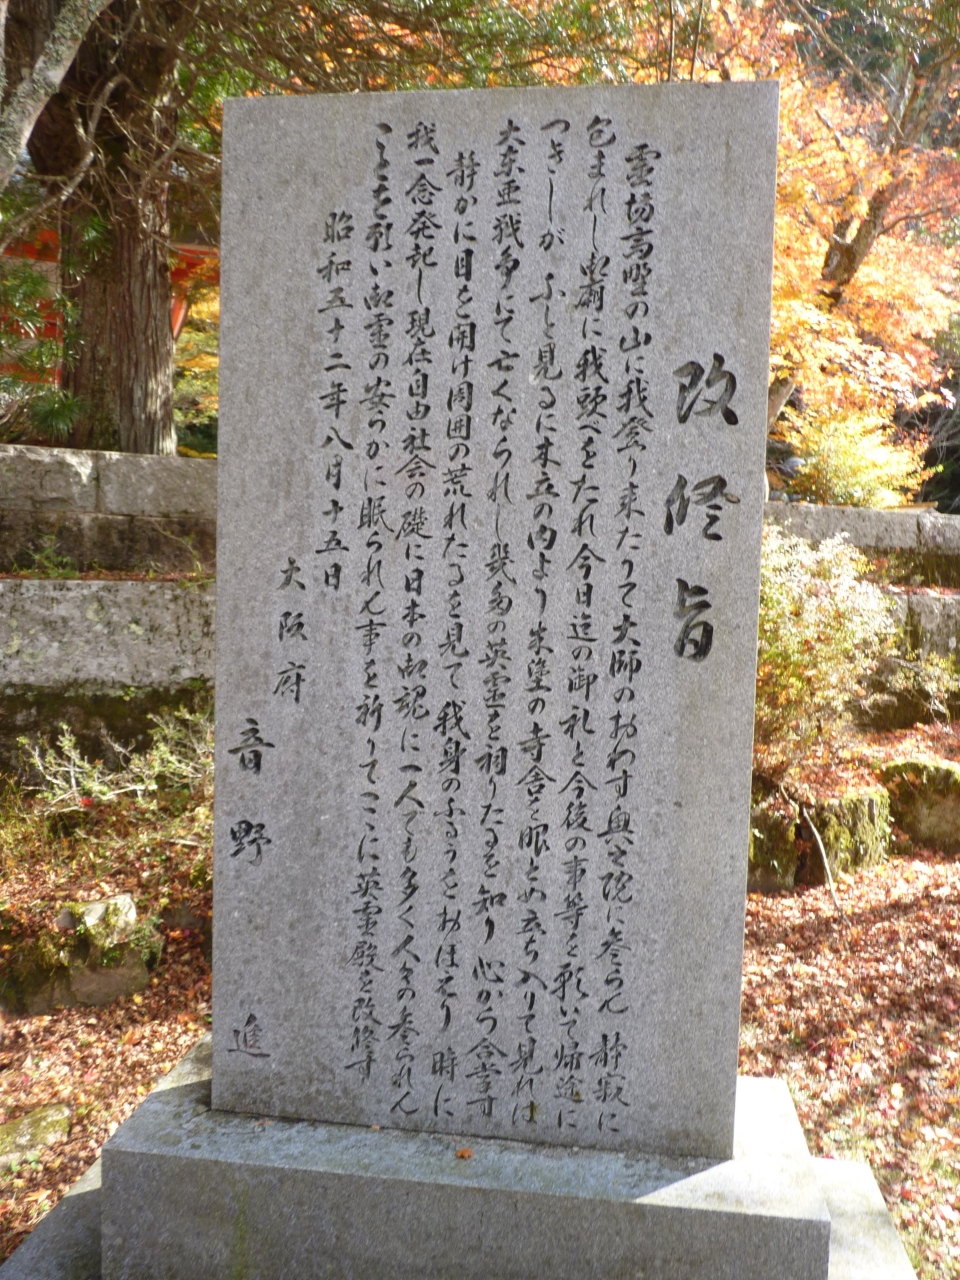 改修旨
霊場高野の山に我登り来たりて大師のおわす奥之院に参らん 静寂に
包まれし御廟に我頭べをたれ今日迄の御礼と今後の事等を願いて帰途に
つきしが ふと見るに木立の内より朱塗の寺舎を眼とめ立ち入りて見れば
大东亜戦争にて亡くなられし幾多の英霊を祠りたるを知り 心から合掌す
静かに目を開け周囲の荒れたるを見て我身のふるうをおぼえり 時に
我一念発起し現在自由社会の礎に日本の御魂に一人でも多く人々の参られん
ことを願い御霊の安らかに眠られん事を祈りてここに英霊殿を改修す
昭和五十二年八月十五日
大阪府
音野 進